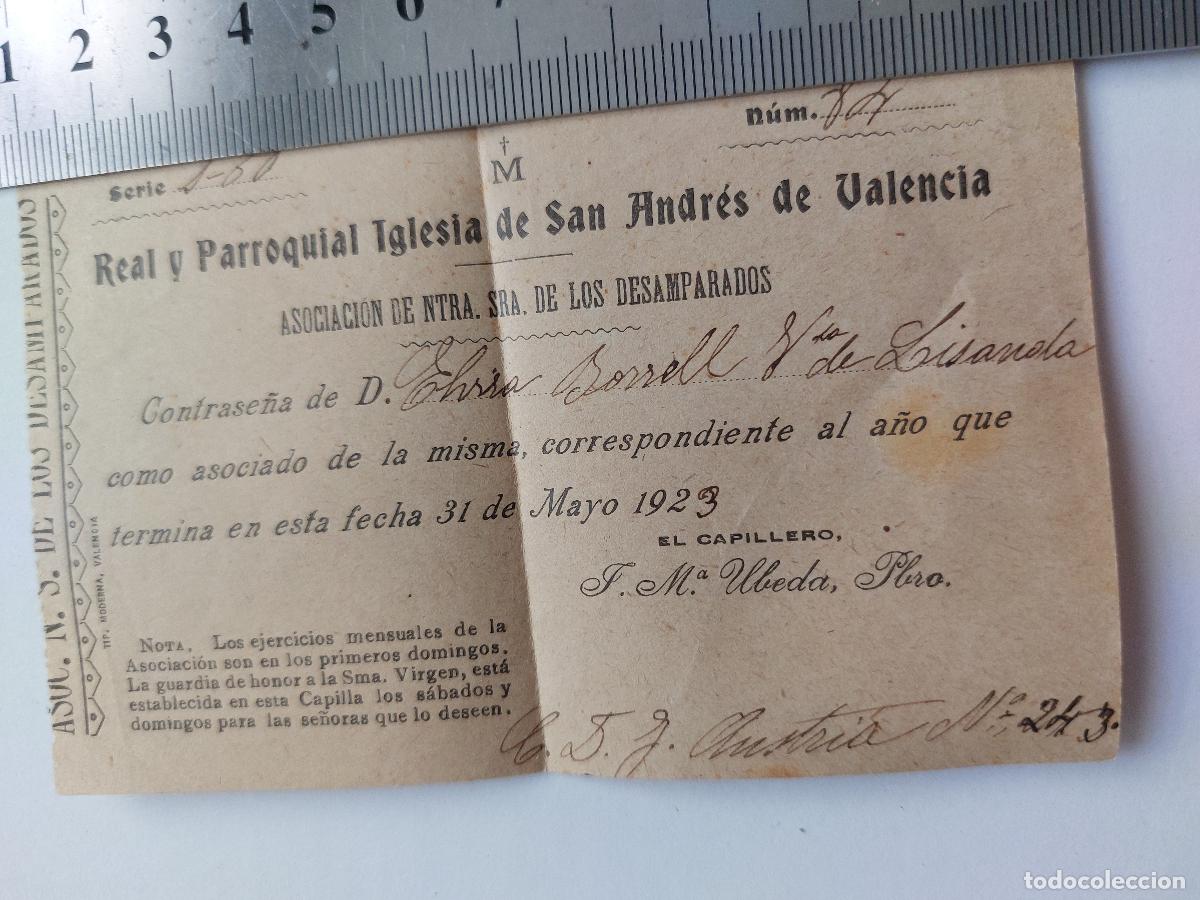 1 2 3 4 5 6 7
Serie
Núm. 84
M
Real y Parroquial Iglesia de San Andrés de Valencia
ASOCIACIÓN DE NTRA. SRA. DE LOS DESAMPARADOS
Contraseña de D. Elvira Borrell Vda de Lisanda
como asociado de la misma, correspondiente al año que
termina en esta fecha 31 de Mayo 1923
EL CAPILLERO,
F. Mª Ubeda, Pbro.
NOTA. Los ejercicios mensuales de la
Asociación son en los primeros domingos.
La guardia de honor a la Sma. Virgen, está
establecida en esta Capilla los sábados y
domingos para las señoras que lo deseen.
C. D. J. Austria Nº 24 3.
ASOC. N. S. DE LOS DESAMPARADOS
TIP. MODERNA, VALENCIA
todocoleccion